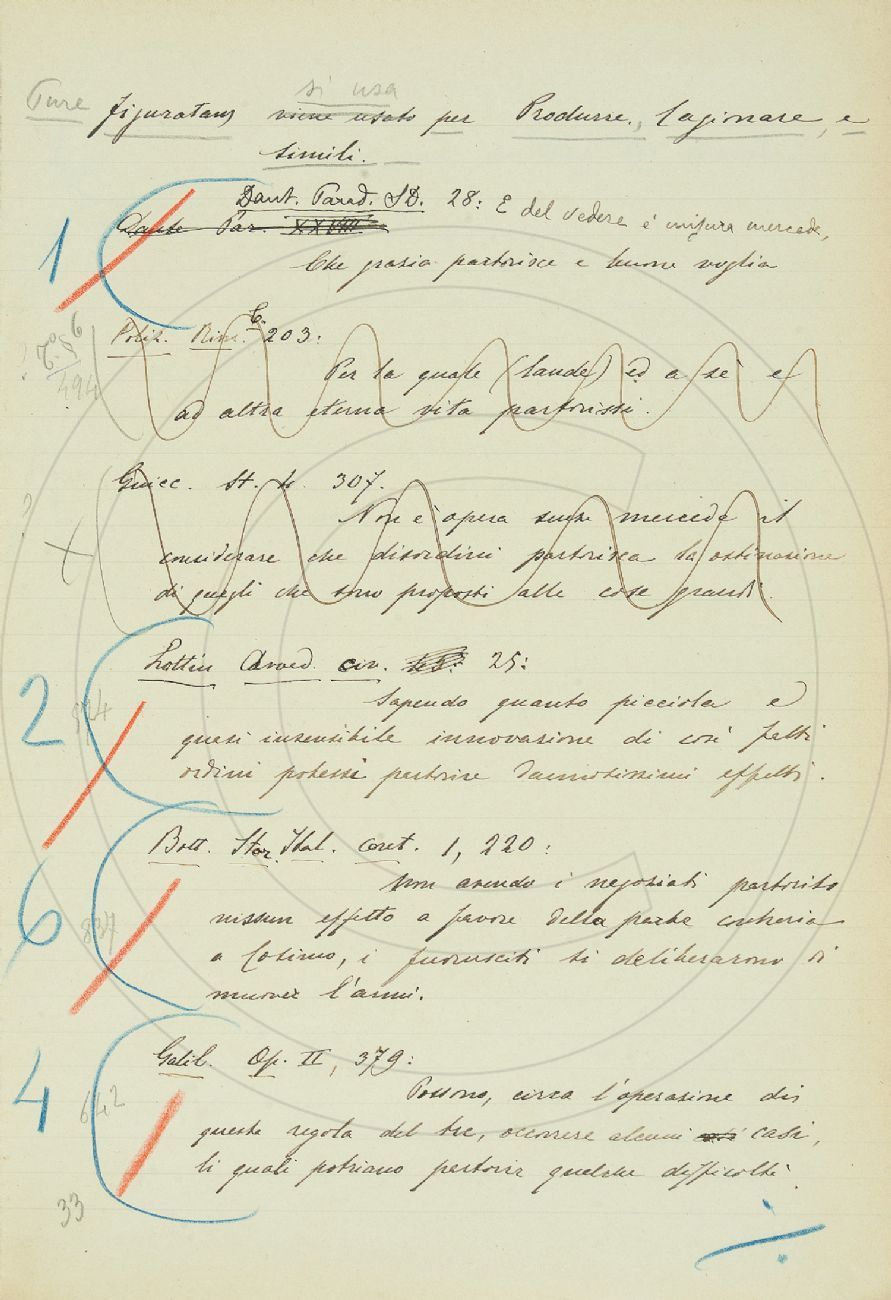 si usa
Pure figuratam viene usato per Produrre, Cagionare, e
simili.
Dant. Parad. 28: E del vedere è misura mercede,
Dante Par. XXVIII
Che grazia partorisce e buona voglia
1
Poliz. Rim. C. 203:
494
Per la quale (laude) ed a sè e
ad altra eterna vita partorissi.
Guicc. St. 307.
?
Non è opera senza mercede il
considerare che disordini partorisca la ostinazione
di quegli che sono proposti alle cose grandi.
Lottin Avved. civ. 25:
2
Sapendo quanto picciola e
quasi insensibile innovazione di così fatti
ordini potessi partorire dannosissimi effetti.
Bott. Stor. Ital. cont. 1, 220:
Non avendo i negoziati partorito
6 837
nissun effetto a favore della parte contraria
a Cosimo, i fuorusciti si deliberarono di
muover l'armi.
Galil. Op. II, 379:
4 642
Possono, circa l'operazione di
questa regola del tre, occorrere alcuni casi,
li quali potriano partorir qualche difficoltà.
33